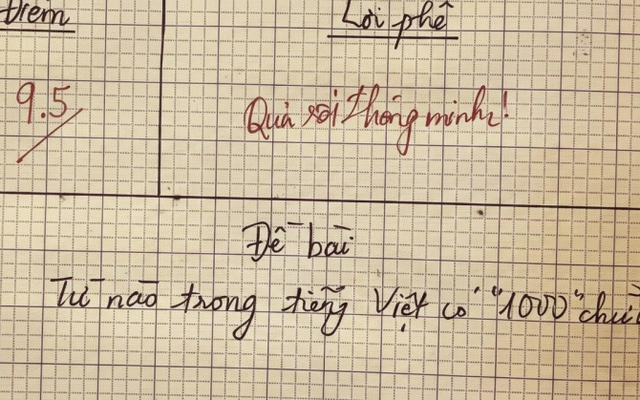 Điểm
Lời phê
9.5
Quả rồi thông minh!
Đề bài
Từ nào trong tiếng Việt có "1000"